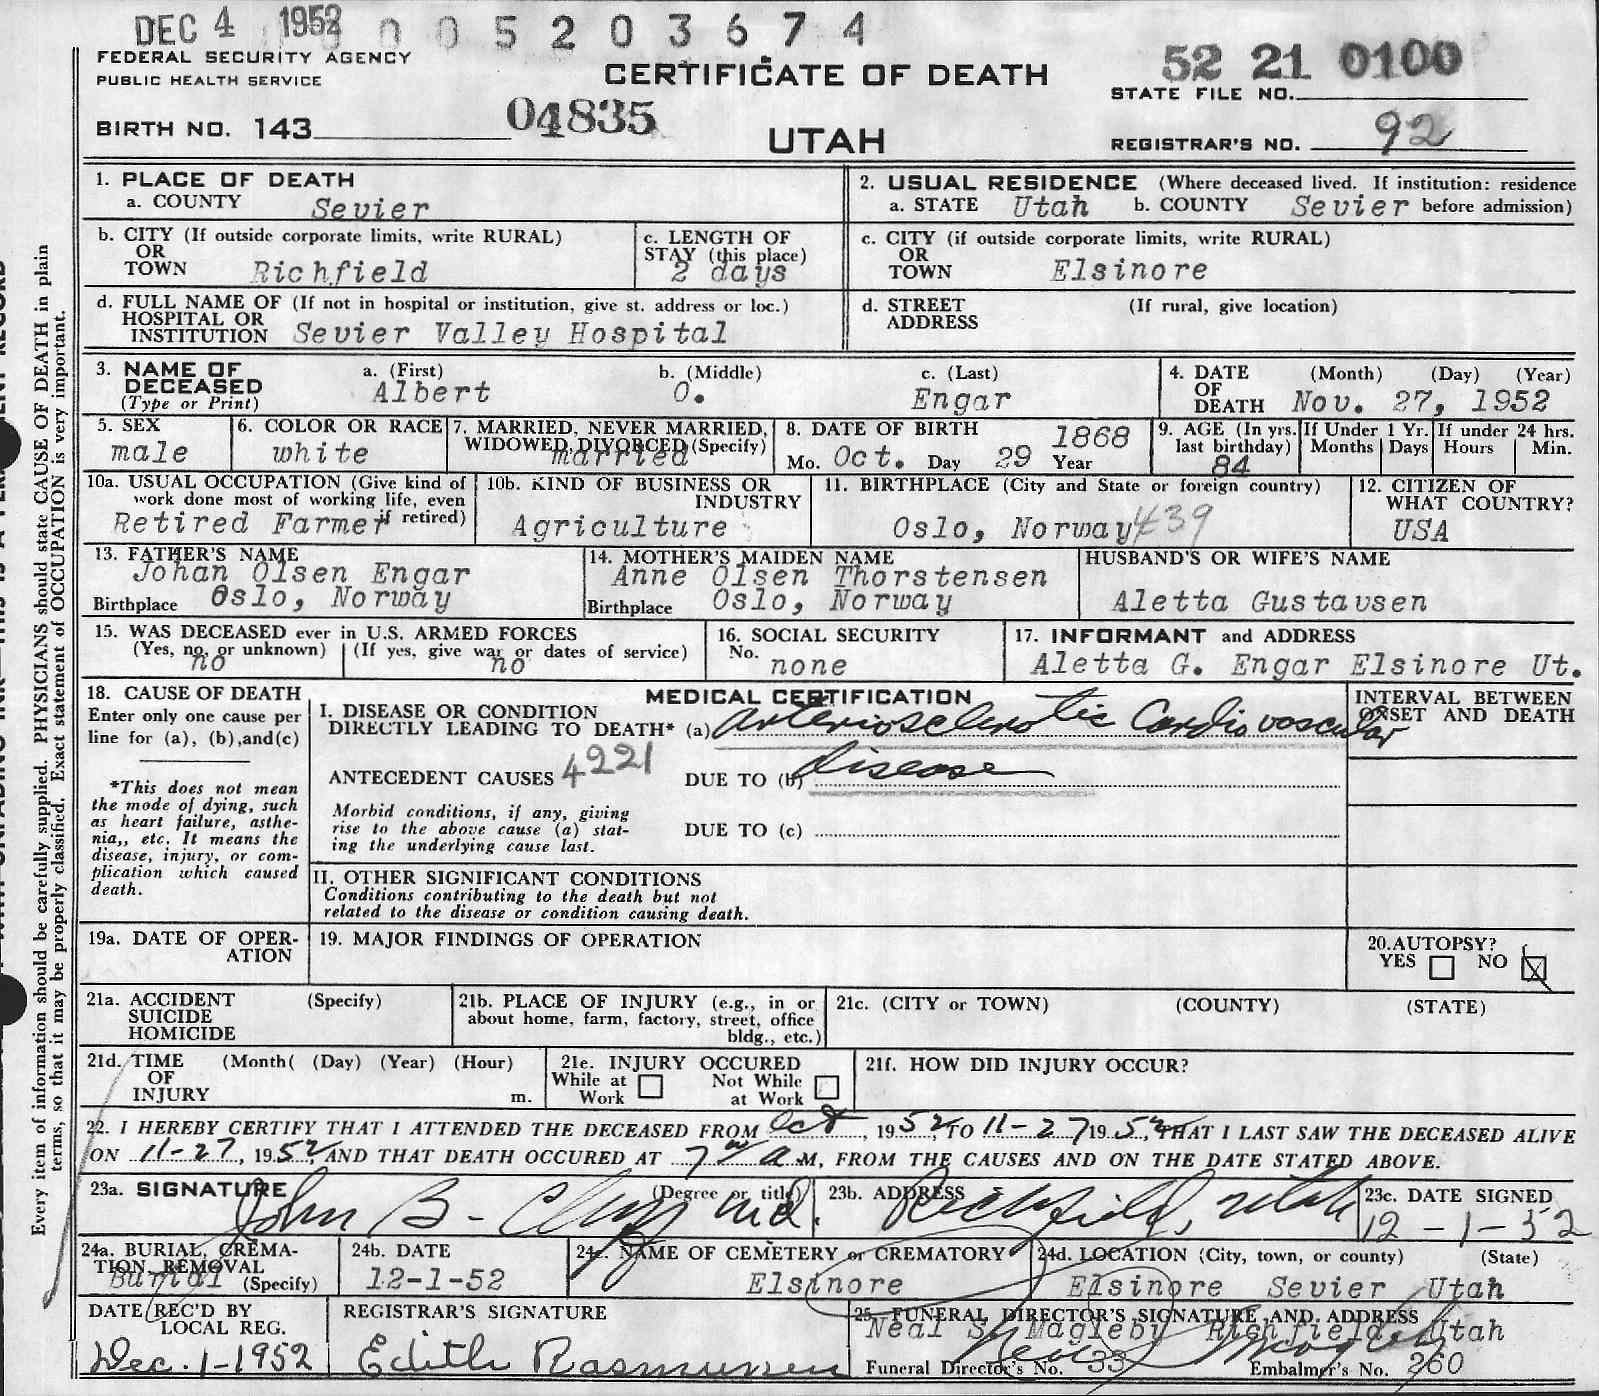 DEC 4 1952 0 0 5 2 0 3 6 7 4
FEDERAL SECURITY AGENCY
PUBLIC HEALTH SERVICE
CERTIFICATE OF DEATH
52 21 0100
STATE FILE NO.
BIRTH NO. 143 04835
UTAH
REGISTRAR'S NO. 92
1. PLACE OF DEATH
a. COUNTY Sevier
2. USUAL RESIDENCE (Where deceased lived. If institution: residence
a. STATE Utah b. COUNTY Sevier before admission)
b. CITY (If outside corporate limits, write RURAL)
OR
TOWN Richfield
c. LENGTH OF
STAY (this place)
2 days
c. CITY (if outside corporate limits, write RURAL)
OR
TOWN Elsinore
d. FULL NAME OF (If not in hospital or institution, give st. address or loc.)
HOSPITAL OR
INSTITUTION Sevier Valley Hospital
d. STREET (If rural, give location)
ADDRESS
3. NAME OF
DECEASED
(Type or Print)
a. (First) b. (Middle) c. (Last)
Albert O. Engar
4. DATE (Month) (Day) (Year)
OF
DEATH Nov. 27, 1952
5. SEX
male
6. COLOR OR RACE
white
7. MARRIED, NEVER MARRIED,
WIDOWED, DIVORCED (Specify)
married
8. DATE OF BIRTH 1868
Mo. Oct. Day 29 Year
9. AGE (In yrs.
last birthday)
84
If Under 1 Yr.
Months Days
If under 24 hrs.
Hours Min.
10a. USUAL OCCUPATION (Give kind of
work done most of working life, even
if retired)
Retired Farmer
10b. KIND OF BUSINESS OR
INDUSTRY
Agriculture
11. BIRTHPLACE (City and State or foreign country)
Oslo, Norway 439
12. CITIZEN OF
WHAT COUNTRY?
USA
13. FATHER'S NAME
Johan Olsen Engar
Birthplace Oslo, Norway
14. MOTHER'S MAIDEN NAME
Anne Olsen Thorstensen
Birthplace Oslo, Norway
HUSBAND'S OR WIFE'S NAME
Aletta Gustavsen
15. WAS DECEASED ever in U.S. ARMED FORCES
(Yes, no, or unknown) (If yes, give war or dates of service)
no no
16. SOCIAL SECURITY
No. none
17. INFORMANT and ADDRESS
Aletta G. Engar Elsinore Ut.
18. CAUSE OF DEATH
Enter only one cause per
line for (a), (b),and(c)
*This does not mean
the mode of dying, such
as heart failure, asthe-
nia,, etc. It means the
disease, injury, or com-
plication which caused
death.
MEDICAL CERTIFICATION
I. DISEASE OR CONDITION
DIRECTLY LEADING TO DEATH* (a) arteriosclerotic Cardiovascular
ANTECEDENT CAUSES 4221 DUE TO (b) disease
Morbid conditions, if any, giving
rise to the above cause (a) stat-
ing the underlying cause last.
DUE TO (c)
INTERVAL BETWEEN
ONSET AND DEATH
II. OTHER SIGNIFICANT CONDITIONS
Conditions contributing to the death but not
related to the disease or condition causing death.
19a. DATE OF OPER-
ATION
19. MAJOR FINDINGS OF OPERATION
20.AUTOPSY?
YES NO
21a. ACCIDENT (Specify)
SUICIDE
HOMICIDE
21b. PLACE OF INJURY (e.g., in or
about home, farm, factory, street, office
bldg., etc.)
21c. (CITY or TOWN) (COUNTY) (STATE)
21d. TIME (Month( (Day) (Year) (Hour)
OF
INJURY m.
21e. INJURY OCCURED
While at Not While
Work at Work
21f. HOW DID INJURY OCCUR?
22. I HEREBY CERTIFY THAT I ATTENDED THE DECEASED FROM Oct, 1952, TO 11-27 1952, THAT I LAST SAW THE DECEASED ALIVE
ON 11-27, 1952 AND THAT DEATH OCCURED AT 7 A M, FROM THE CAUSES AND ON THE DATE STATED ABOVE.
23a. SIGNATURE (Degree or title)
John B. M.D.
23b. ADDRESS
Richfield, Utah
23c. DATE SIGNED
12-1-52
24a. BURIAL, CREMA-
TION, REMOVAL
Burial (Specify)
24b. DATE
12-1-52
24c. NAME OF CEMETERY or CREMATORY
Elsinore
24d. LOCATION (City, town, or county) (State)
Elsinore Sevier Utah
DATE REC'D BY
LOCAL REG.
Dec. 1-1952
REGISTRAR'S SIGNATURE
Edith Rasmussen
25. FUNERAL DIRECTOR'S SIGNATURE AND ADDRESS
Neal S. Magleby Richfield, Utah
Funeral Director's No. 33 Embalmer's No. 260
Every item of information should be carefully supplied. PHYSICIANS should state CAUSE OF DEATH in plain
terms, so that it may be properly classified. Exact statement of OCCUPATION is very important.